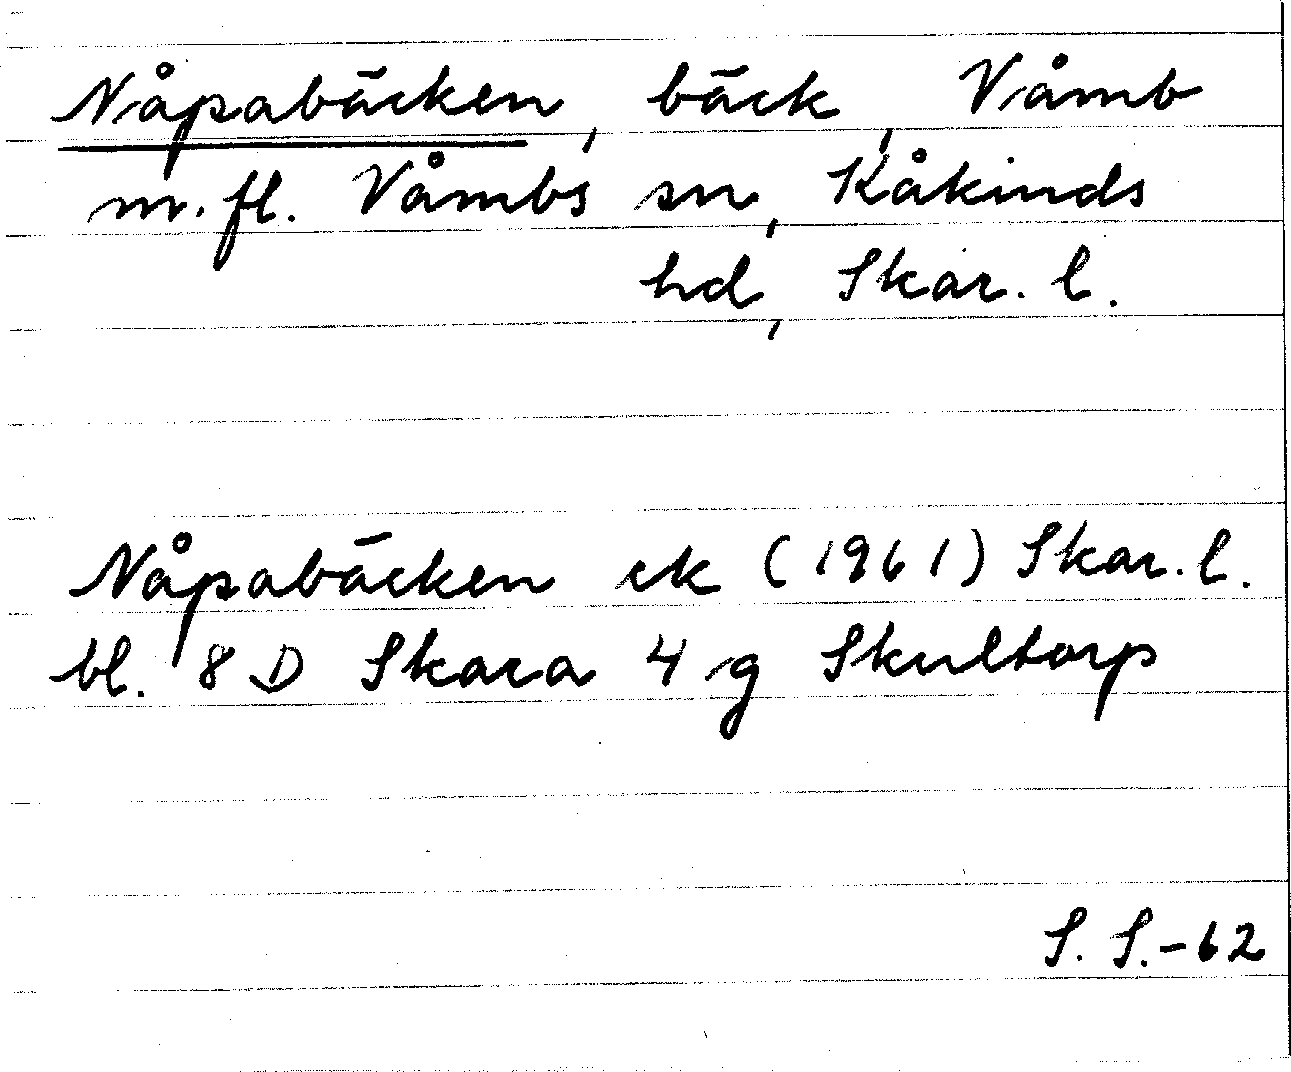 Nåpabäcken, bäck, Våmb
m.fl. Våmbs sn, Kåkinds
hd, Skar. l.
Nåpabäcken ek (1961) Skar. l.
bl. 8 D Skara 4 g Skultorp
S. S. - 62